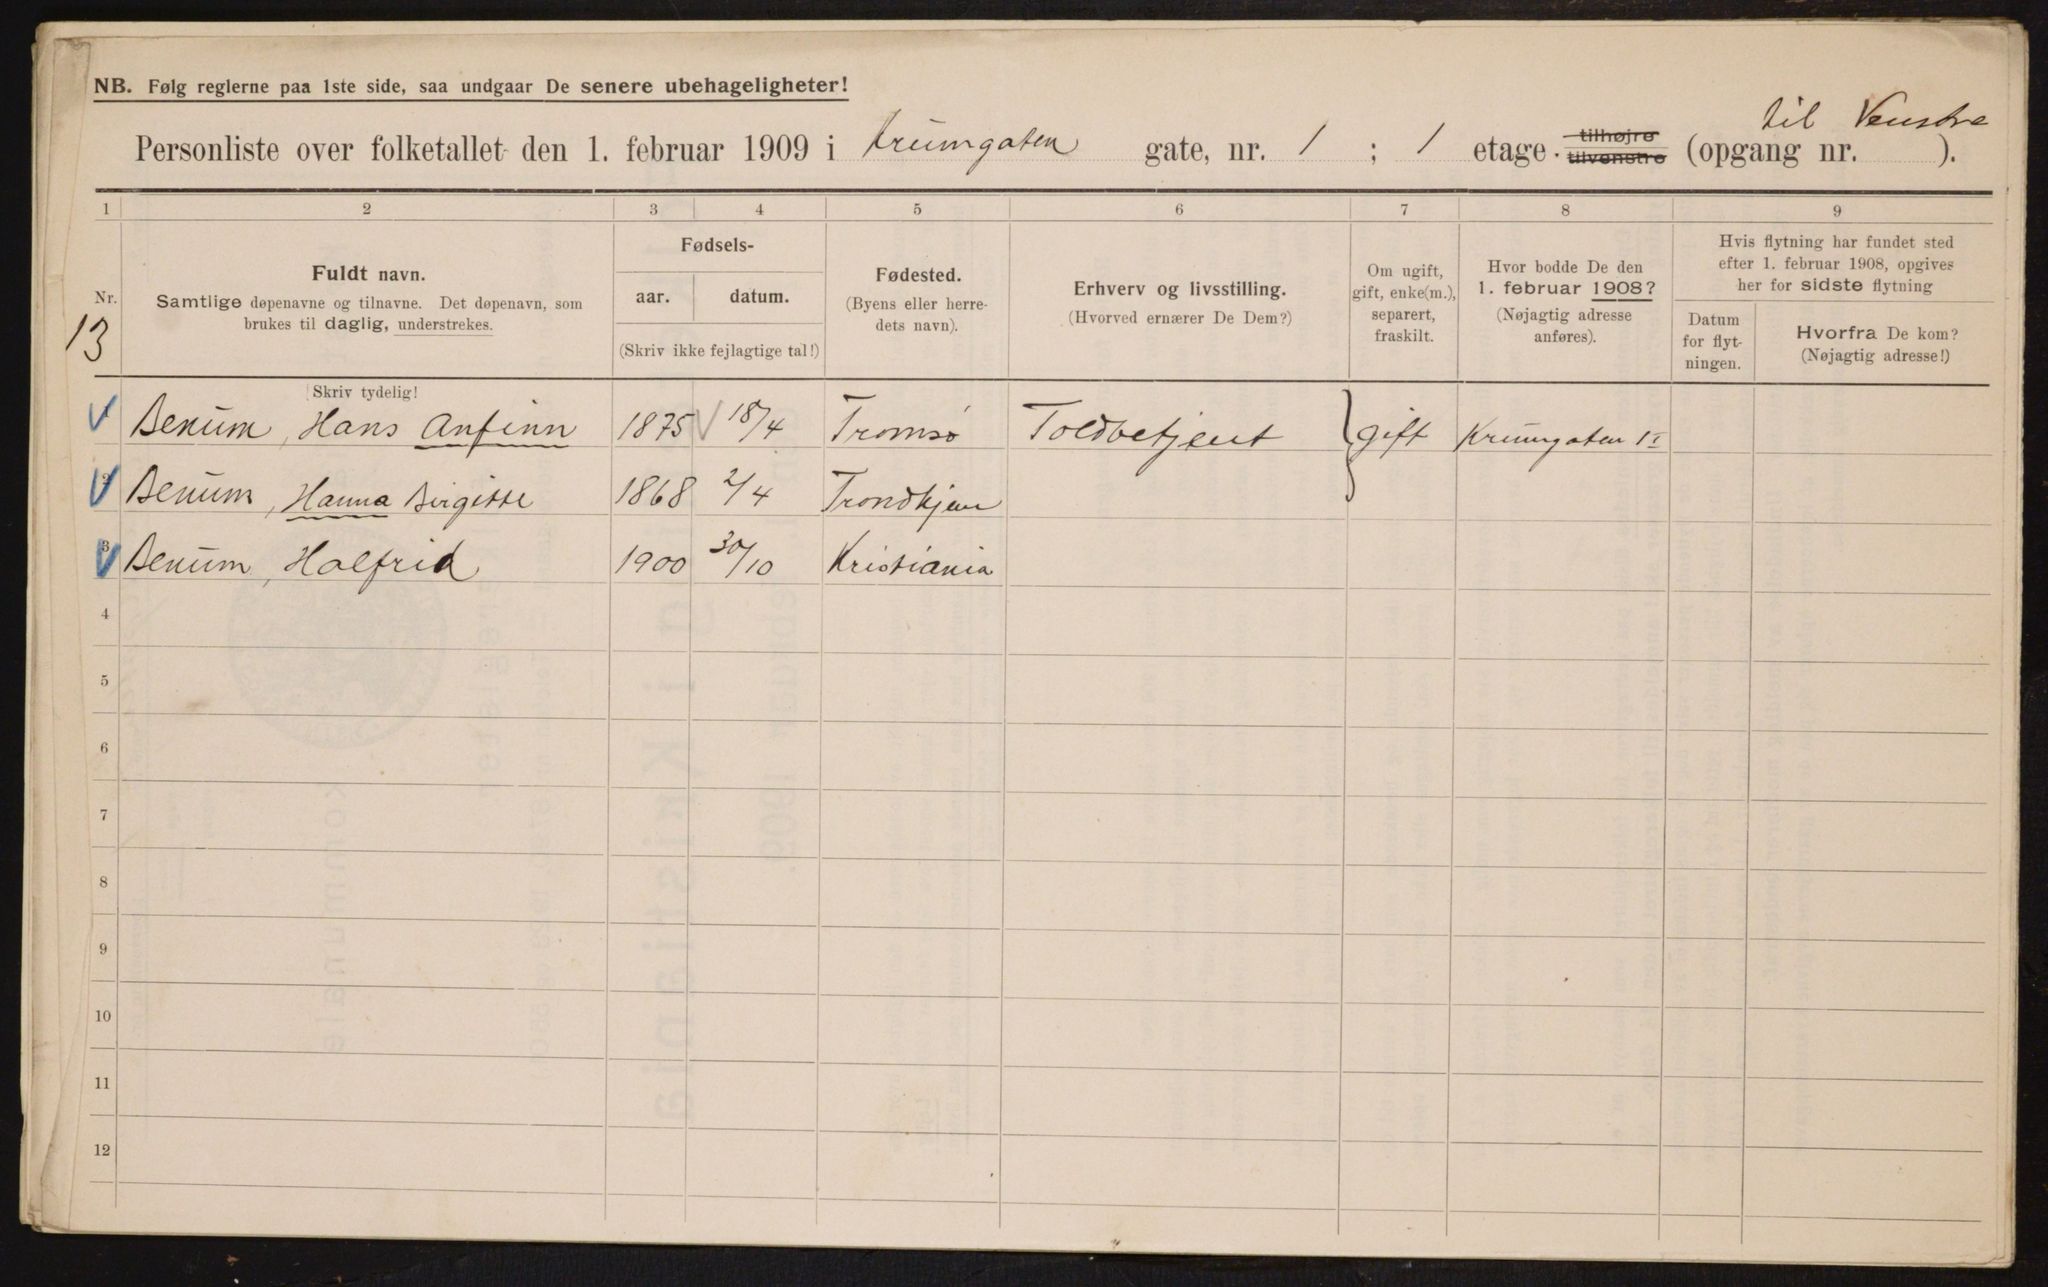 NB. Følg reglerne paa 1ste side, saa undgaar De senere ubehageligheter!
til Venstre
Personliste over folketallet den 1. februar 1909 i Krumgaten gate, nr. 1 ; 1 etage. tilhøjre tilvenstre (opgang nr. ).
1 2 3 4 5 6 7 8 9
Nr.
13
Fuldt navn.
Samtlige døpenavne og tilnavne. Det døpenavn, som
brukes til daglig, understrekes.
Skriv tydelig!
Fødsels-
aar. datum.
(Skriv ikke fejlagtige tal!)
Fødested.
(Byens eller herre-
dets navn).
Erhverv og livsstilling.
(Hvorved ernærer De Dem?)
Om ugift,
gift, enke(m.),
separert,
fraskilt.
Hvor bodde De den
1. februar 1908?
(Nøjagtig adresse
anføres).
Hvis flytning har fundet sted
efter 1. februar 1908, opgives
her for sidste flytning
Datum
for flyt-
ningen.
Hvorfra De kom?
(Nøjagtig adresse!)
1 Benum, Hans Anfinn 1875 18/4 Tromsø Toldbetjent gift Krumgaten 1 I
2 Benum, Hanna Birgitte 1868 2/4 Trondhjem
3 Benum, Halfrid 1900 30/10 Kristiania
4
5
6
7
8
9
10
11
12